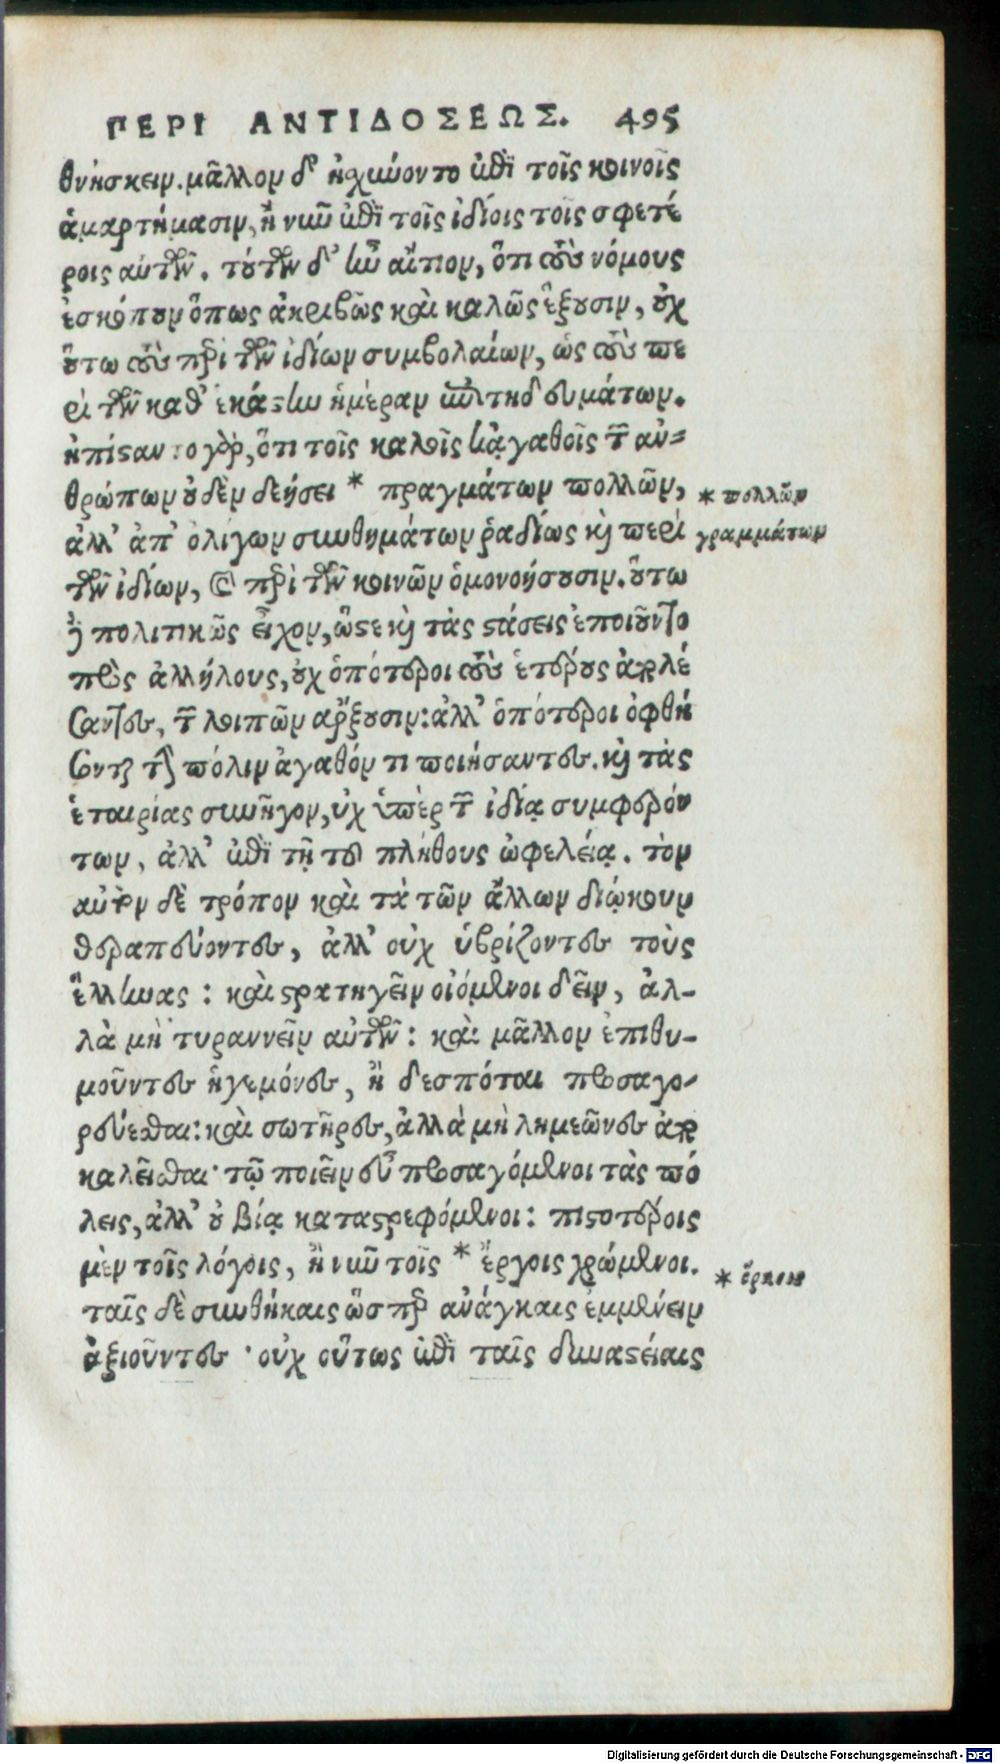 ΠΕΡΙ ΑΝΤΙΔΟΣΕΩΣ. 495
θνήσκειν. μᾶλλον δ' ᾐσχύνοντο ἐπὶ τοῖς κοινοῖς
ἁμαρτήμασιν, ἢ νῦν ἐπὶ τοῖς ἰδίοις τοῖς σφετέ
ροις αὐτῶν. τούτων δ' ἦν αἴτιον, ὅτι τοὺς νόμους
ἐσκόπουν ὅπως ἀκριβῶς καὶ καλῶς ἕξουσιν, οὐχ
οὕτω τοὺς περὶ τῶν ἰδίων συμβολαίων, ὡς τοὺς πε
ρὶ τῶν καθ' ἑκάστην ἡμέραν ἐπιτηδευμάτων.
ἠπίσταντο γὰρ, ὅτι τοῖς καλοῖς κἀγαθοῖς τῶν ἀν-
θρώπων οὐδὲν δεήσει * πραγμάτων πολλῶν,
* πολλῶν
ἀλλ' ἀπ' ὀλίγων συνθημάτων ῥαδίως καὶ περὶ
γραμμάτων
τῶν ἰδίων, καὶ περὶ τῶν κοινῶν ὁμονοήσουσιν. οὕτω
δὲ πολιτικῶς εἶχον, ὥστε καὶ τὰς στάσεις ἐποιοῦντο
πρὸς ἀλλήλους, οὐχ ὁπότεροι τοὺς ἑτέρους ἀπολέ
σαντες, τῶν λοιπῶν ἄρξουσιν: ἀλλ' ὁπότεροι ὀφθή
σονται τὴν πόλιν ἀγαθόν τι ποιήσαντες. καὶ τὰς
ἑταιρίας συνῆγον, οὐχ ὑπὲρ τῶν ἰδίᾳ συμφερόν
των, ἀλλ' ἐπὶ τῇ τοῦ πλήθους ὠφελείᾳ. τὸν
αὐτὸν δὲ τρόπον καὶ τὰ τῶν ἄλλων διῴκουν
θεραπεύοντες, ἀλλ' οὐχ ὑβρίζοντες τοὺς
ἕλληνας: καὶ στρατηγεῖν οἰόμενοι δεῖν, ἀλ-
λὰ μὴ τυραννεῖν αὐτῶν: καὶ μᾶλλον ἐπιθυ-
μοῦντες ἡγεμόνες, ἢ δεσπόται προσαγο-
ρεύεσθαι: καὶ σωτῆρες, ἀλλὰ μὴ λημεῶνες ἀπο
καλεῖσθαι· τῷ ποιεῖν εὖ προσαγόμενοι τὰς πό
λεις, ἀλλ' οὐ βίᾳ καταστρεφόμενοι: πιστοτέροις
μὲν τοῖς λόγοις, ἢ νῦν τοῖς * ἔργοις χρώμενοι.
* ὅρκοις
ταῖς δὲ συνθήκαις ὥσπερ ἀνάγκαις ἐμμένειν
ἀξιοῦντες· οὐχ οὕτως ἐπὶ ταῖς δυναστείαις
Digitalisierung gefördert durch die Deutsche Forschungsgemeinschaft - DFG